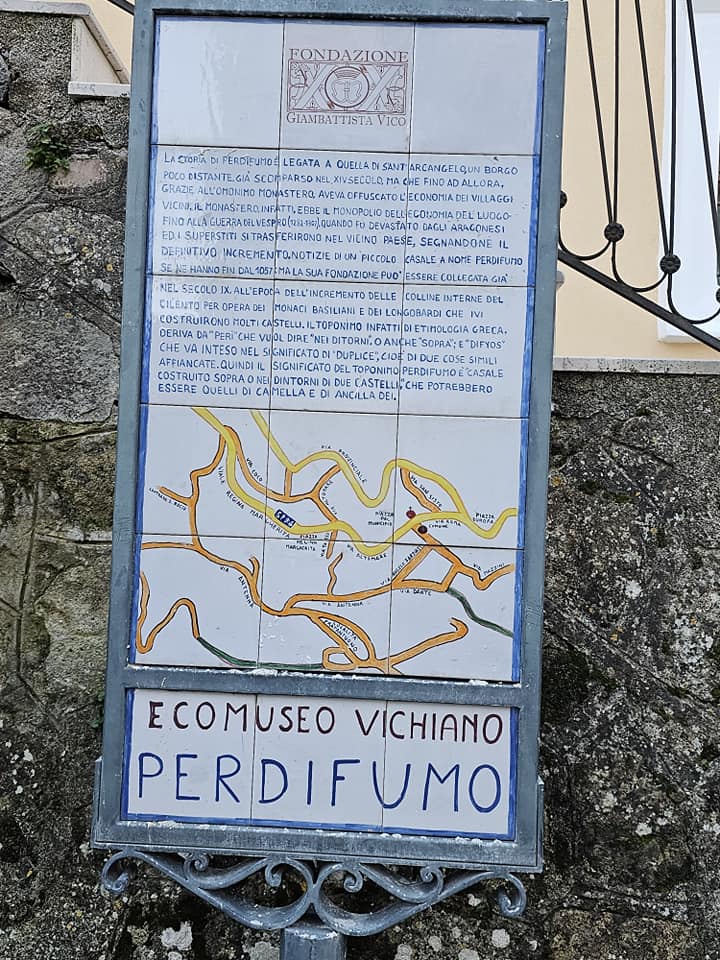 FONDAZIONE
GIAMBATTISTA VICO
LA STORIA DI PERDIFUMO È LEGATA A QUELLA DI SANT'ARCANGELO, UN BORGO
POCO DISTANTE. GIÀ SCOMPARSO NEL XIV SECOLO, MA CHE FINO AD ALLORA,
GRAZIE ALL'OMONIMO MONASTERO, AVEVA OFFUSCATO L'ECONOMIA DEI VILLAGGI
VICINI. IL MONASTERO, INFATTI, EBBE IL MONOPOLIO DELL'ECONOMIA DEL LUOGO
FINO ALLA GUERRA DEL VESPRO QUANDO FU DEVASTATO DAGLI ARAGONESI
ED I SUPERSTITI SI TRASFERIRONO NEL VICINO PAESE, SEGNANDONE IL
DEFINITIVO INCREMENTO. NOTIZIE DI UN PICCOLO CASALE A NOME PERDIFUMO
SE NE HANNO FIN DAL 1057. MA LA SUA FONDAZIONE PUO' ESSERE COLLEGATA GIÀ
NEL SECOLO IX. ALL'EPOCA DELL'INCREMENTO DELLE COLLINE INTERNE DEL
CILENTO PER OPERA DEI MONACI BASILIANI E DEI LONGOBARDI CHE IVI
COSTRUIRONO MOLTI CASTELLI. IL TOPONIMO INFATTI DI ETIMOLOGIA GRECA.
DERIVA DA "PERI" CHE VUOL DIRE "NEI DITORNI", O ANCHE "SOPRA"; E "DIFYOS"
CHE VA INTESO NEL SIGNIFICATO DI "DUPLICE", CIOÈ DI DUE COSE SIMILI
AFFIANCATE. QUINDI IL SIGNIFICATO DEL TOPONIMO PERDIFUMO È "CASALE
COSTRUITO SOPRA O NEI DINTORNI DI DUE CASTELLI", CHE POTREBBERO
ESSERE QUELLI DI CAMELLA E DI ANCILLA DEI.
VIA PROVINCIALE
VIALE REGINA MARGHERITA
PIAZZA
REGINA
MARGHERITA
VIA ALTEMARE
MUNICIPIO
VIA ROMA
PIAZZA
EUROPA
COMUNE
VIA MAZZINI
VIA DANTE
VIA ANTENNA
VIA ANTENNA
LOCALITÀ
ECOMUSEO VICHIANO
PERDIFUMO